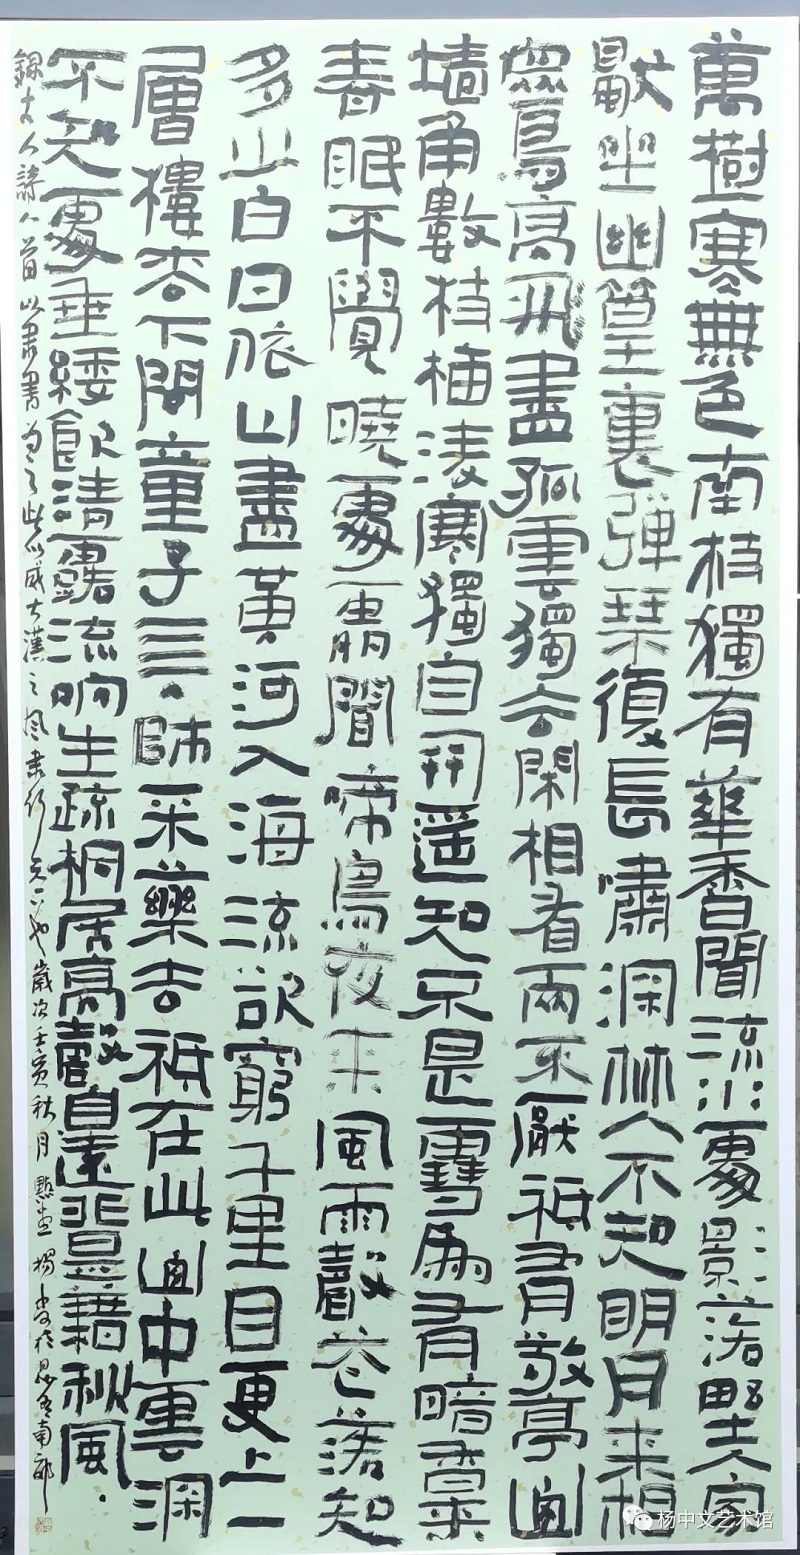 萬樹寒無色南枝獨有華香聞流水處影落野人家
獨坐幽篁裏彈琴復長嘯深林人不知明月来相
眾鳥高飛盡孤雲獨去閑相看兩不厭祗有敬亭山
墙角數枝梅凌寒獨自開遥知不是雪為有暗香来
春眠不覺曉處處聞啼鳥夜来風雨聲花落知
多少白日依山盡黄河入海流欲窮千里目更上一
層樓松下問童子言師采藥去祗在此山中雲深
不知處垂緌飲清露流响生疏桐居高聲自遠非是藉秋風
錄古人詩八首以隸書為之大漢之風歲次壬寅秋月楊
杨中文艺术馆